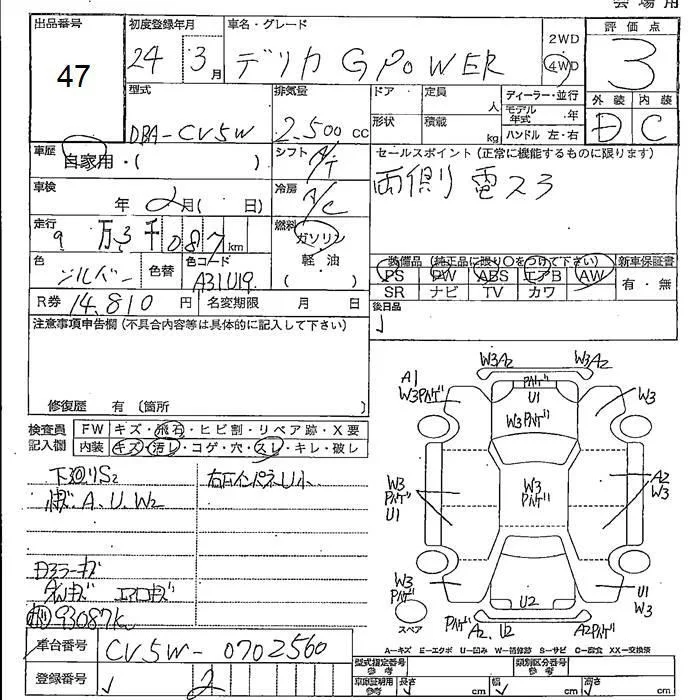 会場用
出品番号 初度登録年月 車名・グレード 評価点
47 24 3月 デリカ G POWER 2WD 4WD 3
型式 排気量 ドア 定員 人 ディーラー・並行 外装 内装
DBA-CV5W 2.500 cc 形状 積載 kg モデル年式 年 ハンドル 左・右 D C
車歴 自家用・( ) シフト A/T セールスポイント(正常に機能するものに限ります)
車検 年 2月( 日) 冷房 A/C 両側電スラ
走行 9万3千087km 燃料 ガソリン 軽油
色 シルバー 色替 色コード A31U19
装備品(純正品に限り○をつけて下さい) 新車保証書
PS PW ABS エアB AW 有・無
SR ナビ TV カワ
R券 14.810円 名変期限 月 日
後日品
注意事項申告欄(不具合内容等は具体的に記入して下さい)
修復歴 有 (箇所
検査員記入欄 FW キズ・飛石・ヒビ割・リペア跡・X要
内装 キズ・汚レ・コゲ・穴・スレ・キレ・破レ
下廻りS2
A、U、W2
93087k
車台番号 CV5W-0702560
登録番号 2
W3A2 W3A2
A1
W3パハゲ
パハゲ
U1
W3
W3パハゲ
W3
パハゲ
U1
W3
パハゲ
A2
W3
W3
パハゲ
U2
U1
W3
スペア
パハゲ
A2、U2
A2パハゲ
A-キズ E-エクボ U-凹み W-補修跡 S-サビ C-腐食 XX-交換済
型式指定番号 参考 類別区分番号 参考
車庫証明用 参考 長さ cm 幅 cm 高さ cm